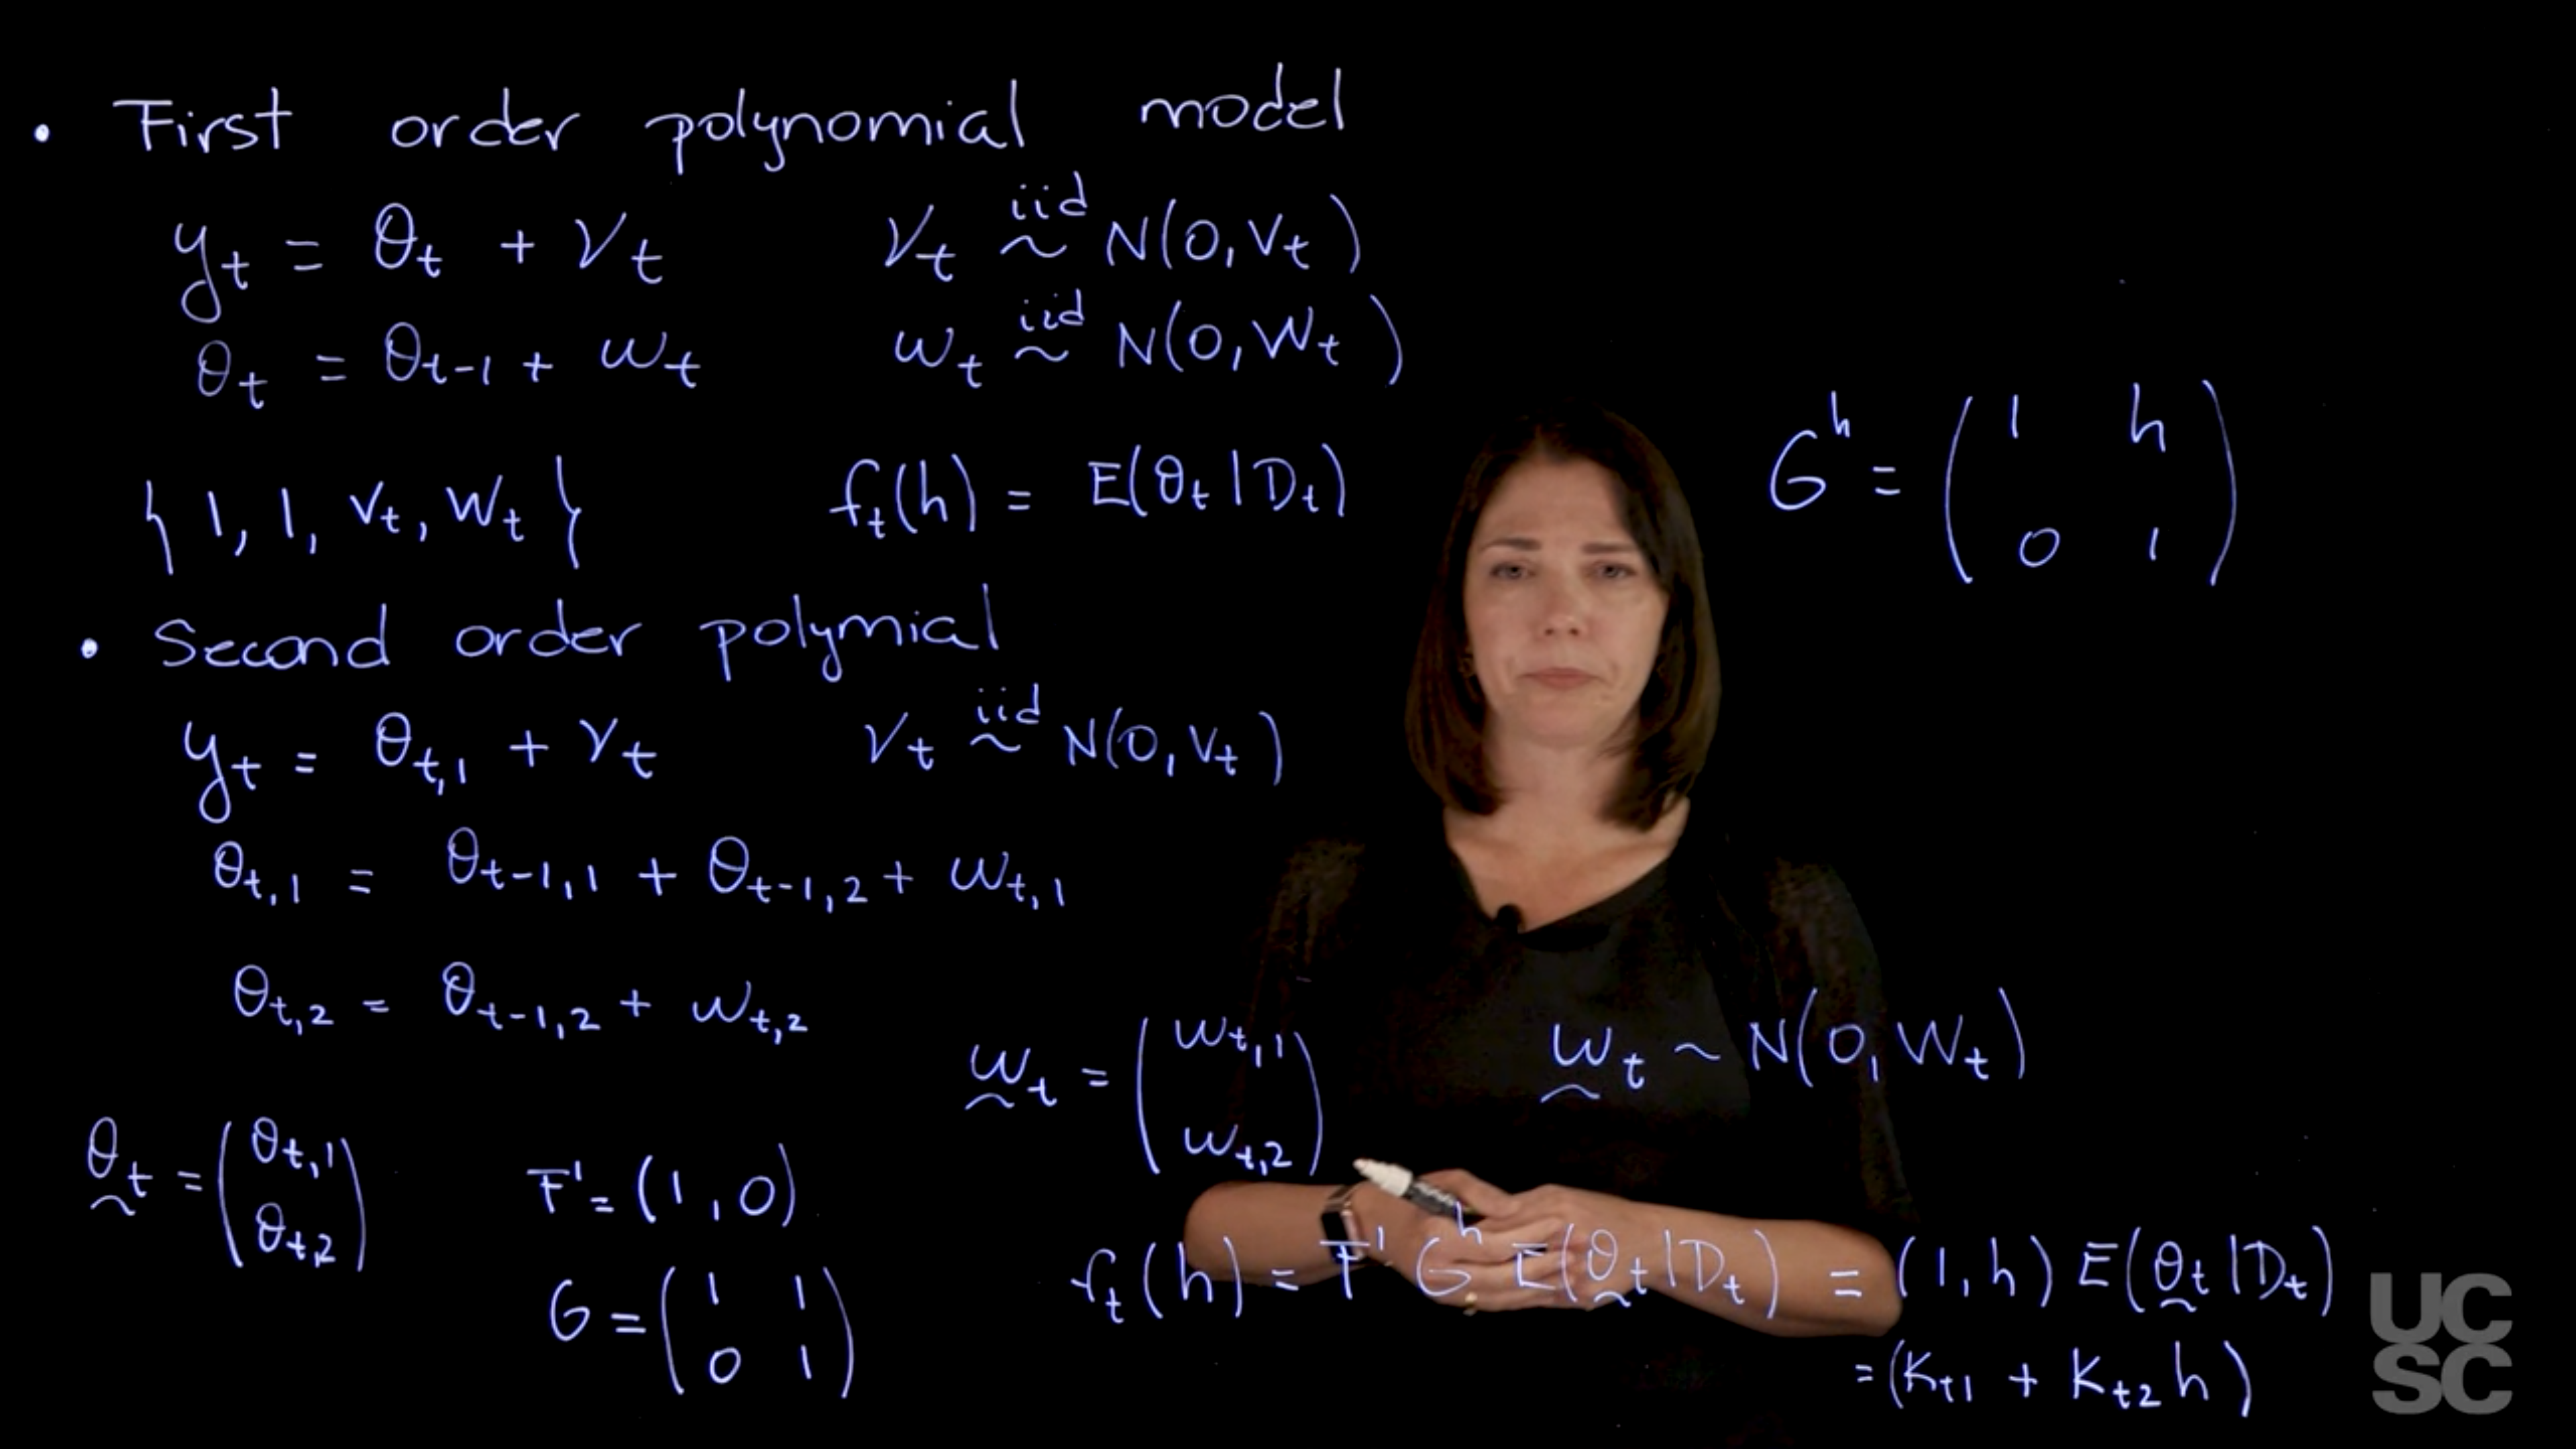 • First order polynomial model
yₜ = θₜ + νₜ      νₜ iid ~ N(0, vₜ)
θₜ = θₜ₋₁ + ωₜ      ωₜ iid ~ N(0, Wₜ)
{ 1, 1, vₜ, Wₜ }      fₜ(h) = E(θₜ | Dₜ)
Gʰ = ( 1 h
0 1 )
• Second order polymial
yₜ = θₜ,₁ + νₜ      νₜ iid ~ N(0, vₜ)
θₜ,₁ = θₜ₋₁,₁ + θₜ₋₁,₂ + ωₜ,₁
θₜ,₂ = θₜ₋₁,₂ + ωₜ,₂
ωₜ = ( ωₜ,₁
ωₜ,₂ )
ωₜ ~ N(0, Wₜ)
θₜ = ( θₜ,₁
θₜ,₂ )
F' = (1, 0)
G = ( 1 1
0 1 )
fₜ(h) = F' Gʰ E(θₜ | Dₜ) = (1, h) E(θₜ | Dₜ)
= (Kₜ₁ + Kₜ₂ h)
UC
SC